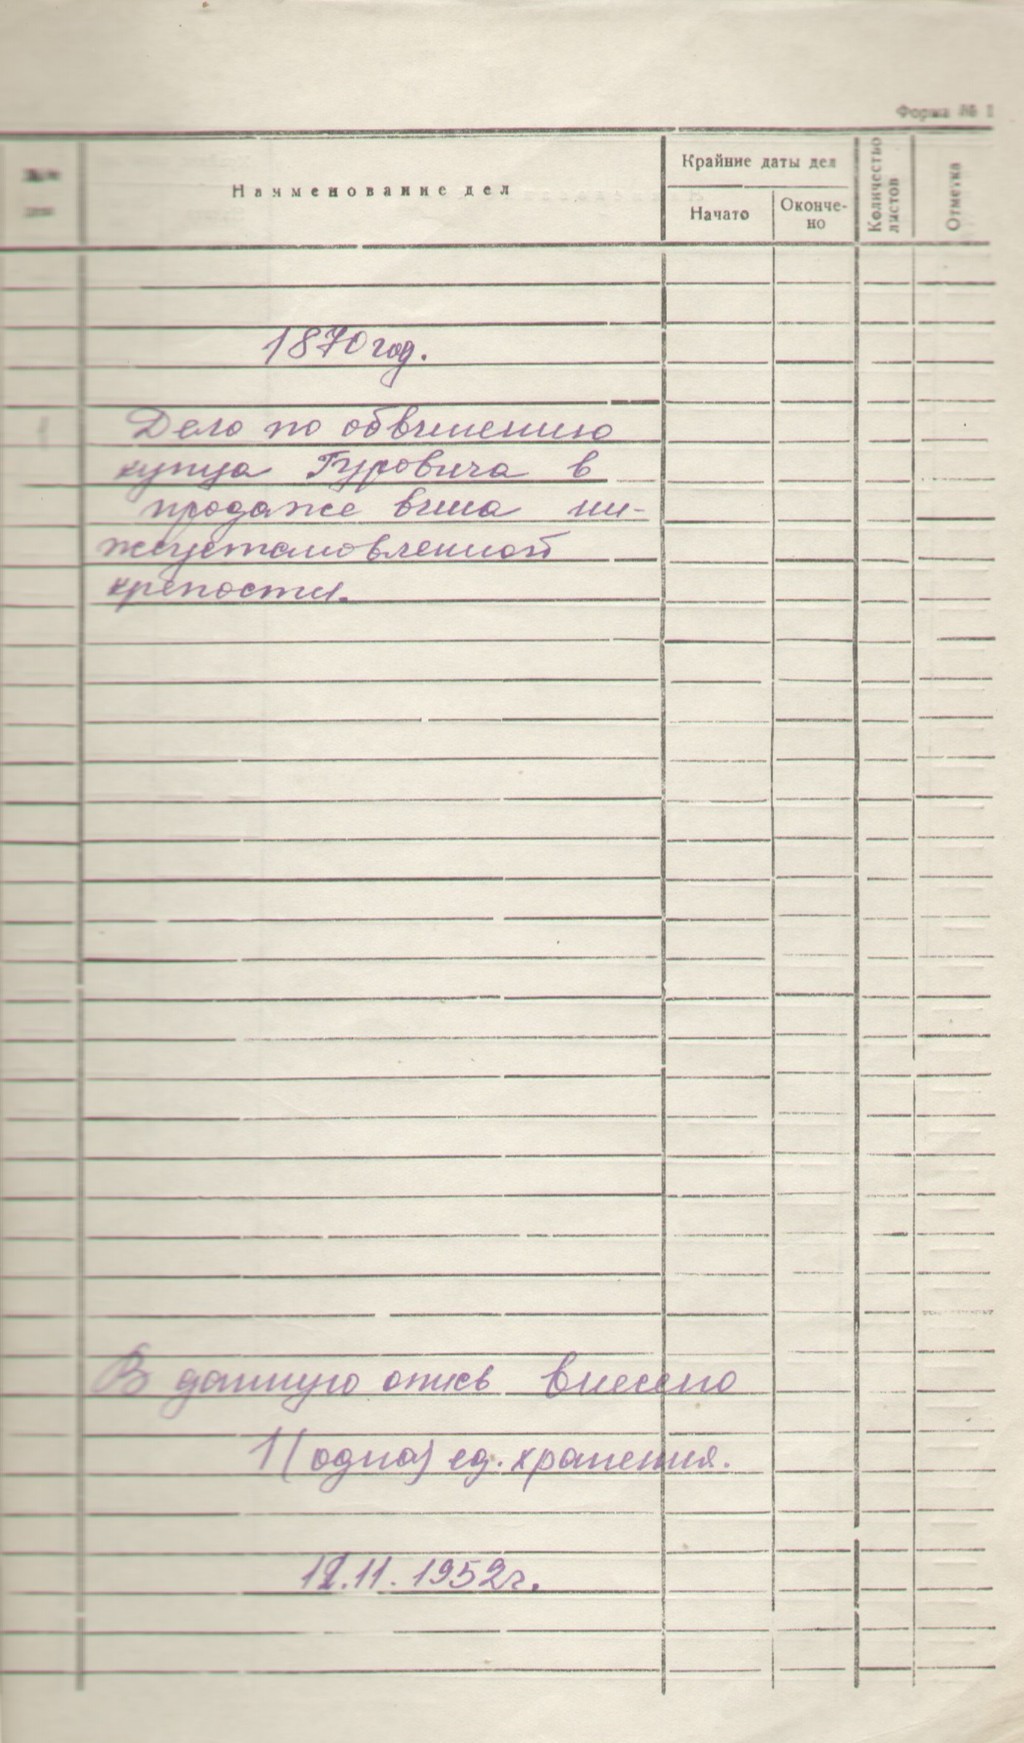 Форма № 1
№№
Наименование дел
Крайние даты дел
Начато
Окончено
Количество листов
Отметка
1870 год.
1
Дело по обвинению
купца Гуровича в
продаже вина ни-
жеустановленной
крепости.
В данную опись внесено
1 (одна) ед. хранения.
12.11.1952г.